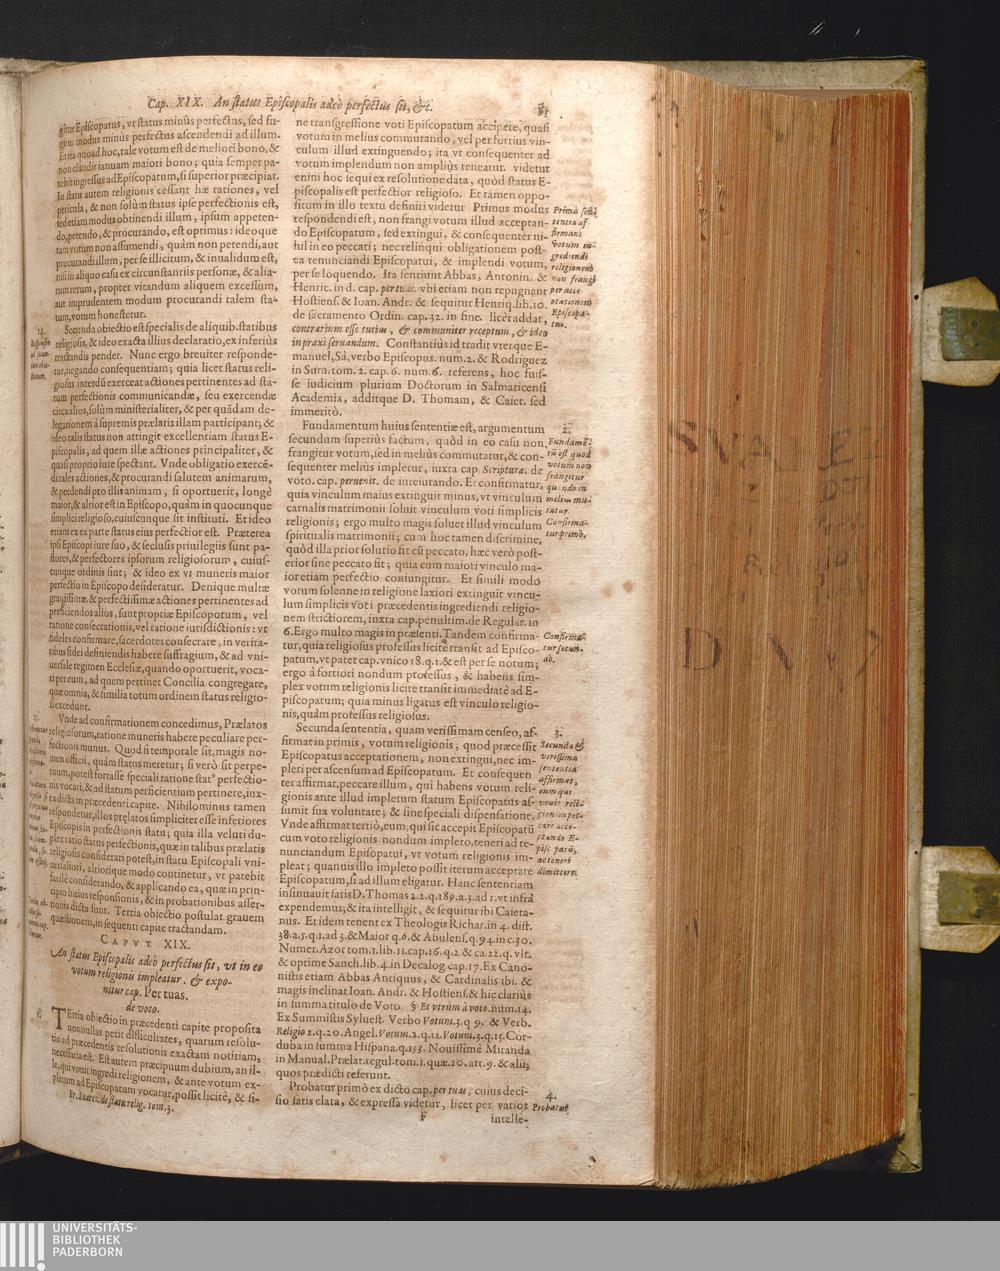 Cap. XIX. An status Episcopalis adeò perfectus sit, &c.
Episcopatus, vt status minùs perfectus, sed fu-
modus minùs perfectus ascendendi ad illum.
quoad hoc, tale votum est de meliori bono, &
non claudit ianuam maiori bono; quia semper pa-
tebit ingressus ad Episcopatum, si superior præcipiat.
In statu autem religionis cessant hæ rationes, vel
pericula, & non solùm status ipse perfectionis est,
sed etiam modus obtinendi illum, ipsum appeten-
do, petendo, & procurando, est optimus: ideoque
tam votum non assumendi, quàm non petendi, aut
procurandi illum, per se illicitum, & inualidum est,
nisi in aliquo casu ex circunstantiis personæ, & alia-
rum rerum, propter vitandum aliquem excessum,
aut imprudentem modum procurandi talem sta-
tum, votum honestetur.
14.
Secunda obiectio est specialis de aliquib. statibus
religiosis, & ideo exacta illius declaratio, ex inferiùs
tractandis pender. Nunc ergo breuiter responde-
tur, negando consequentiam; quia licet status reli-
giosus interdũ exerceat actiones pertinentes ad sta-
tum perfectionis communicandæ, seu exercendæ
circa alios, solùm ministerialiter, & per quãdam de-
legationem à supremis prælatis illam participant; &
ideo talis status non attingit excellentiam status E-
piscopalis, ad quem illæ actiones principaliter, &
quasi proprio iure spectant. Vnde obligatio exercẽ-
di tales actiones, & procurandi salutem animarum,
& perdendi pro illis animam, si oportuerit, longè
maior, & altior est in Episcopo, quàm in quocunque
simplici religioso, cuiuscunque sit instituti. Et ideo
etiam ex ea parte status eius perfectior est. Præterea
ipsi Episcopi iure suo, & seclusis priuilegiis sunt pa-
stores, & perfectores ipsorum religiosorum, cuius-
cunque ordinis sint; & ideo ex vi muneris maior
perfectio in Episcopo desideratur. Denique multæ
grauissimæ, & perfectissimæ actiones pertinentes ad
perficiendos alios, sunt propriæ Episcoporum, vel
ratione consecrationis, vel ratione iurisdictionis: vt
fideles confirmare, sacerdotes consecrare, in verita-
tibus fidei definiendis habere suffragium, & ad vni-
uersale regimen Ecclesiæ, quando oportuerit, voca-
ri per eum, ad quem pertinet Concilia congregare,
quæ omnia, & similia totum ordinem status religio-
si excedunt.
Vnde ad confirmationem concedimus, Prælatos
religiosorum, ratione muneris habere peculiare per-
fectionis munus. Quod si temporale sit, magis no-
men officii, quàm status meretur; si verò sit perpe-
tuum, potest fortasse speciali ratione statᵘ perfectio-
nis vocari, & ad statum perficientium pertinere, iux-
ta dicta in præcedenti capite. Nihilominus tamen
respondetur, illos prelatos simpliciter esse inferiores
Episcopis in perfectionis statu; quia illa veluti du-
plex ratio status perfectionis, quæ in talibus prælatis
religiosis considerari potest, in statu Episcopali vni-
uersaliori, altiorique modo continetur, vt patebit
facilè considerando, & applicando ea, quæ in prin-
cipio huius responsionis, & in probationibus asser-
tionis dicta sunt. Tertia obiectio postulat grauem
quæstionem, in sequenti capite tractandam.
CAPVT XIX.
An status Episcopalis adeò perfectus sit, vt in eo
votum religionis impleatur. & expo-
nitur cap. Per tuas.
de voto.
TErtia obiectio in præcedenti capite proposita
nonnullas petit difficultates, quarum resolu-
tio ad præcedentis resolutionis exactam notitiam,
necessaria est. Est autem præcipuum dubium, an il-
le, qui vouit ingredi religionem, & ante votum ex-
pletum ad Episcopatum vocatur, possit licitè, & si-
Fr. Suarez. de statu relig. tom. 3.
ne transgressione voti Episcopatum accipere, quasi
votum in melius commutando, vel per fortius vin-
culum illud extinguendo; ita vt consequenter ad
votum implendum non ampliùs teneatur. videtur
enim hoc sequi ex resolutione data, quòd status E-
piscopalis est perfectior religioso. Et tamen oppo-
situm in illo textu definiri videtur Primus modus
respondendi est, non frangi votum illud acceptan-
do Episcopatum, sed extingui, & consequenter ni-
hil in eo peccari; nec relinqui obligationem post-
ea renunciandi Episcopatui, & implendi votum,
per se loquendo. Ita sentiunt Abbas, Antonin. &
Henric. in d. cap. per tuas. vbi etiam non repugnant
Hostiens. & Ioan. Andr. & sequitur Henriq. lib. 10.
de sacramento Ordin. cap. 32. in fine. licèt addat,
contrarium esse tutius, & communiter receptum, & ideo
in praxi seruandum. Constantiùs id tradit vterque E-
manuel, Sà, verbo Episcopus. num. 2. & Rodriguez
in Sum. tom. 2. cap. 6. num. 6. referens, hoc fuis-
se iudicium plurium Doctorum in Salmaticensi
Academia, additque D. Thomam, & Caiet. sed
immeritò.
Prima sentẽ
tentia af-
firmans
votum in-
grediendi
religionem
non frangi
per acce
ptationem
Episcopa-
tus.
Fundamentum huius sententiæ est, argumentum
secundum superiùs factum, quòd in eo casu non
frangitur votum, sed in meliùs commutatur, & con-
sequenter meliùs impletur, iuxta cap. Scripturæ. de
voto. cap. peruenit. de iureiurando. Et confirmatur,
quia vinculum maius extinguit minus, vt vinculum
carnalis matrimonii soluit vinculum voti simplicis
religionis; ergo multo magis soluet illud vinculum
spiritualis matrimonii; cum hoc tamen discrimine,
quòd illa prior solutio fit cũ peccato, hæc verò post-
erior sine peccato fit; quia cum maiori vinculo ma-
ior etiam perfectio coniungitur. Et simili modo
votum solenne in religione laxiori extinguit vincu-
lum simplicis voti præcedentis ingrediendi religio-
nem strictiorem, iuxta cap. penultim. de Regular. in
6. Ergo multo magis in præsenti. Tandem confirma-
tur, quia religiosus professus licitè transit ad Episco-
patum, vt patet cap. vnico 18. q. 1. & est per se notum;
ergo à fortiori nondum professus, & habens sim-
plex votum religionis licite transit immediatè ad E-
piscopatum; quia minus ligatus est vinculo religio-
nis, quàm professus religiosus.
2.
Fundamẽ-
tũ est quod
votum non
frangitur
quando in
melius mu-
tatur.
Confirma-
tur primò.
Confirma-
tur secun-
dò.
Secunda sententia, quam verissimam censeo, af-
firmat in primis, votum religionis, quod præcessit
Episcopatus acceptationem, non extingui, nec im-
pleri per ascensum ad Episcopatum. Et consequen
ter affirmat, peccare illum, qui habens votum reli-
gionis ante illud impletum statum Episcopatus as-
sumit sua voluntate; & sine speciali dispensatione,
Vnde affirmat tertiò, eum, qui sic accepit Episcopatũ
cum voto religionis nondum impleto, teneri ad re-
nunciandum Episopatui, vt votum religionis im-
pleat; quamuis illo impleto possit iterum acceptare
Episcopatum, si ad illum eligatur. Hanc sententiam
insinuauit satis D. Thomas 2.2. q. 189. a. 3. ad 1. vt infrà
expendemus; & ita intelligit, & sequitur ibi Caieta-
nus. Et idem tenent ex Theologis Richar. in 4. dist.
38. a. 5. q. 1. ad 3. & Maior q. 6. & Abulens. q. 94. in c. 30.
Numer. Azor tom. 1. lib. 11. cap. 16. q. 2 & ca. 22. q. vlt.
& optime Sanch. lib. 4. in Decalog. cap. 17. Ex Cano-
nistis etiam Abbas Antiquus, & Cardinalis ibi. &
magis inclinat Ioan. Andr. & Hostiens. & hic clariùs
in summa titulo de Voto § Et vtrùm à voto. num. 14.
Ex Summistis Syluest. Verbo Votum. 3. q 9. & Verb.
Religio 2. q. 20. Angel. Votum. 2. q. 12. Votum. 3. q. 15. Cor-
duba in summa Hispana. q. 153. Nouissimè Miranda
in Manual. Prælat. regul. tom. 1. quæ. 20. art. 9. & alii,
quos prædicti referunt.
3.
Secunda &
verissima
sententia
affirmat,
eum qui
vouit reli-
gionem pec-
care acce-
ptando E-
pisc patũ,
ac teneri
dimittere.
Probatur primò ex dicto cap. per tuas, cuius deci-
sio satis clara, & expressa videtur, licet per varios
4.
Probatur
F
intelle-
UNIVERSITÄTS-
BIBLIOTHEK
PADERBORN